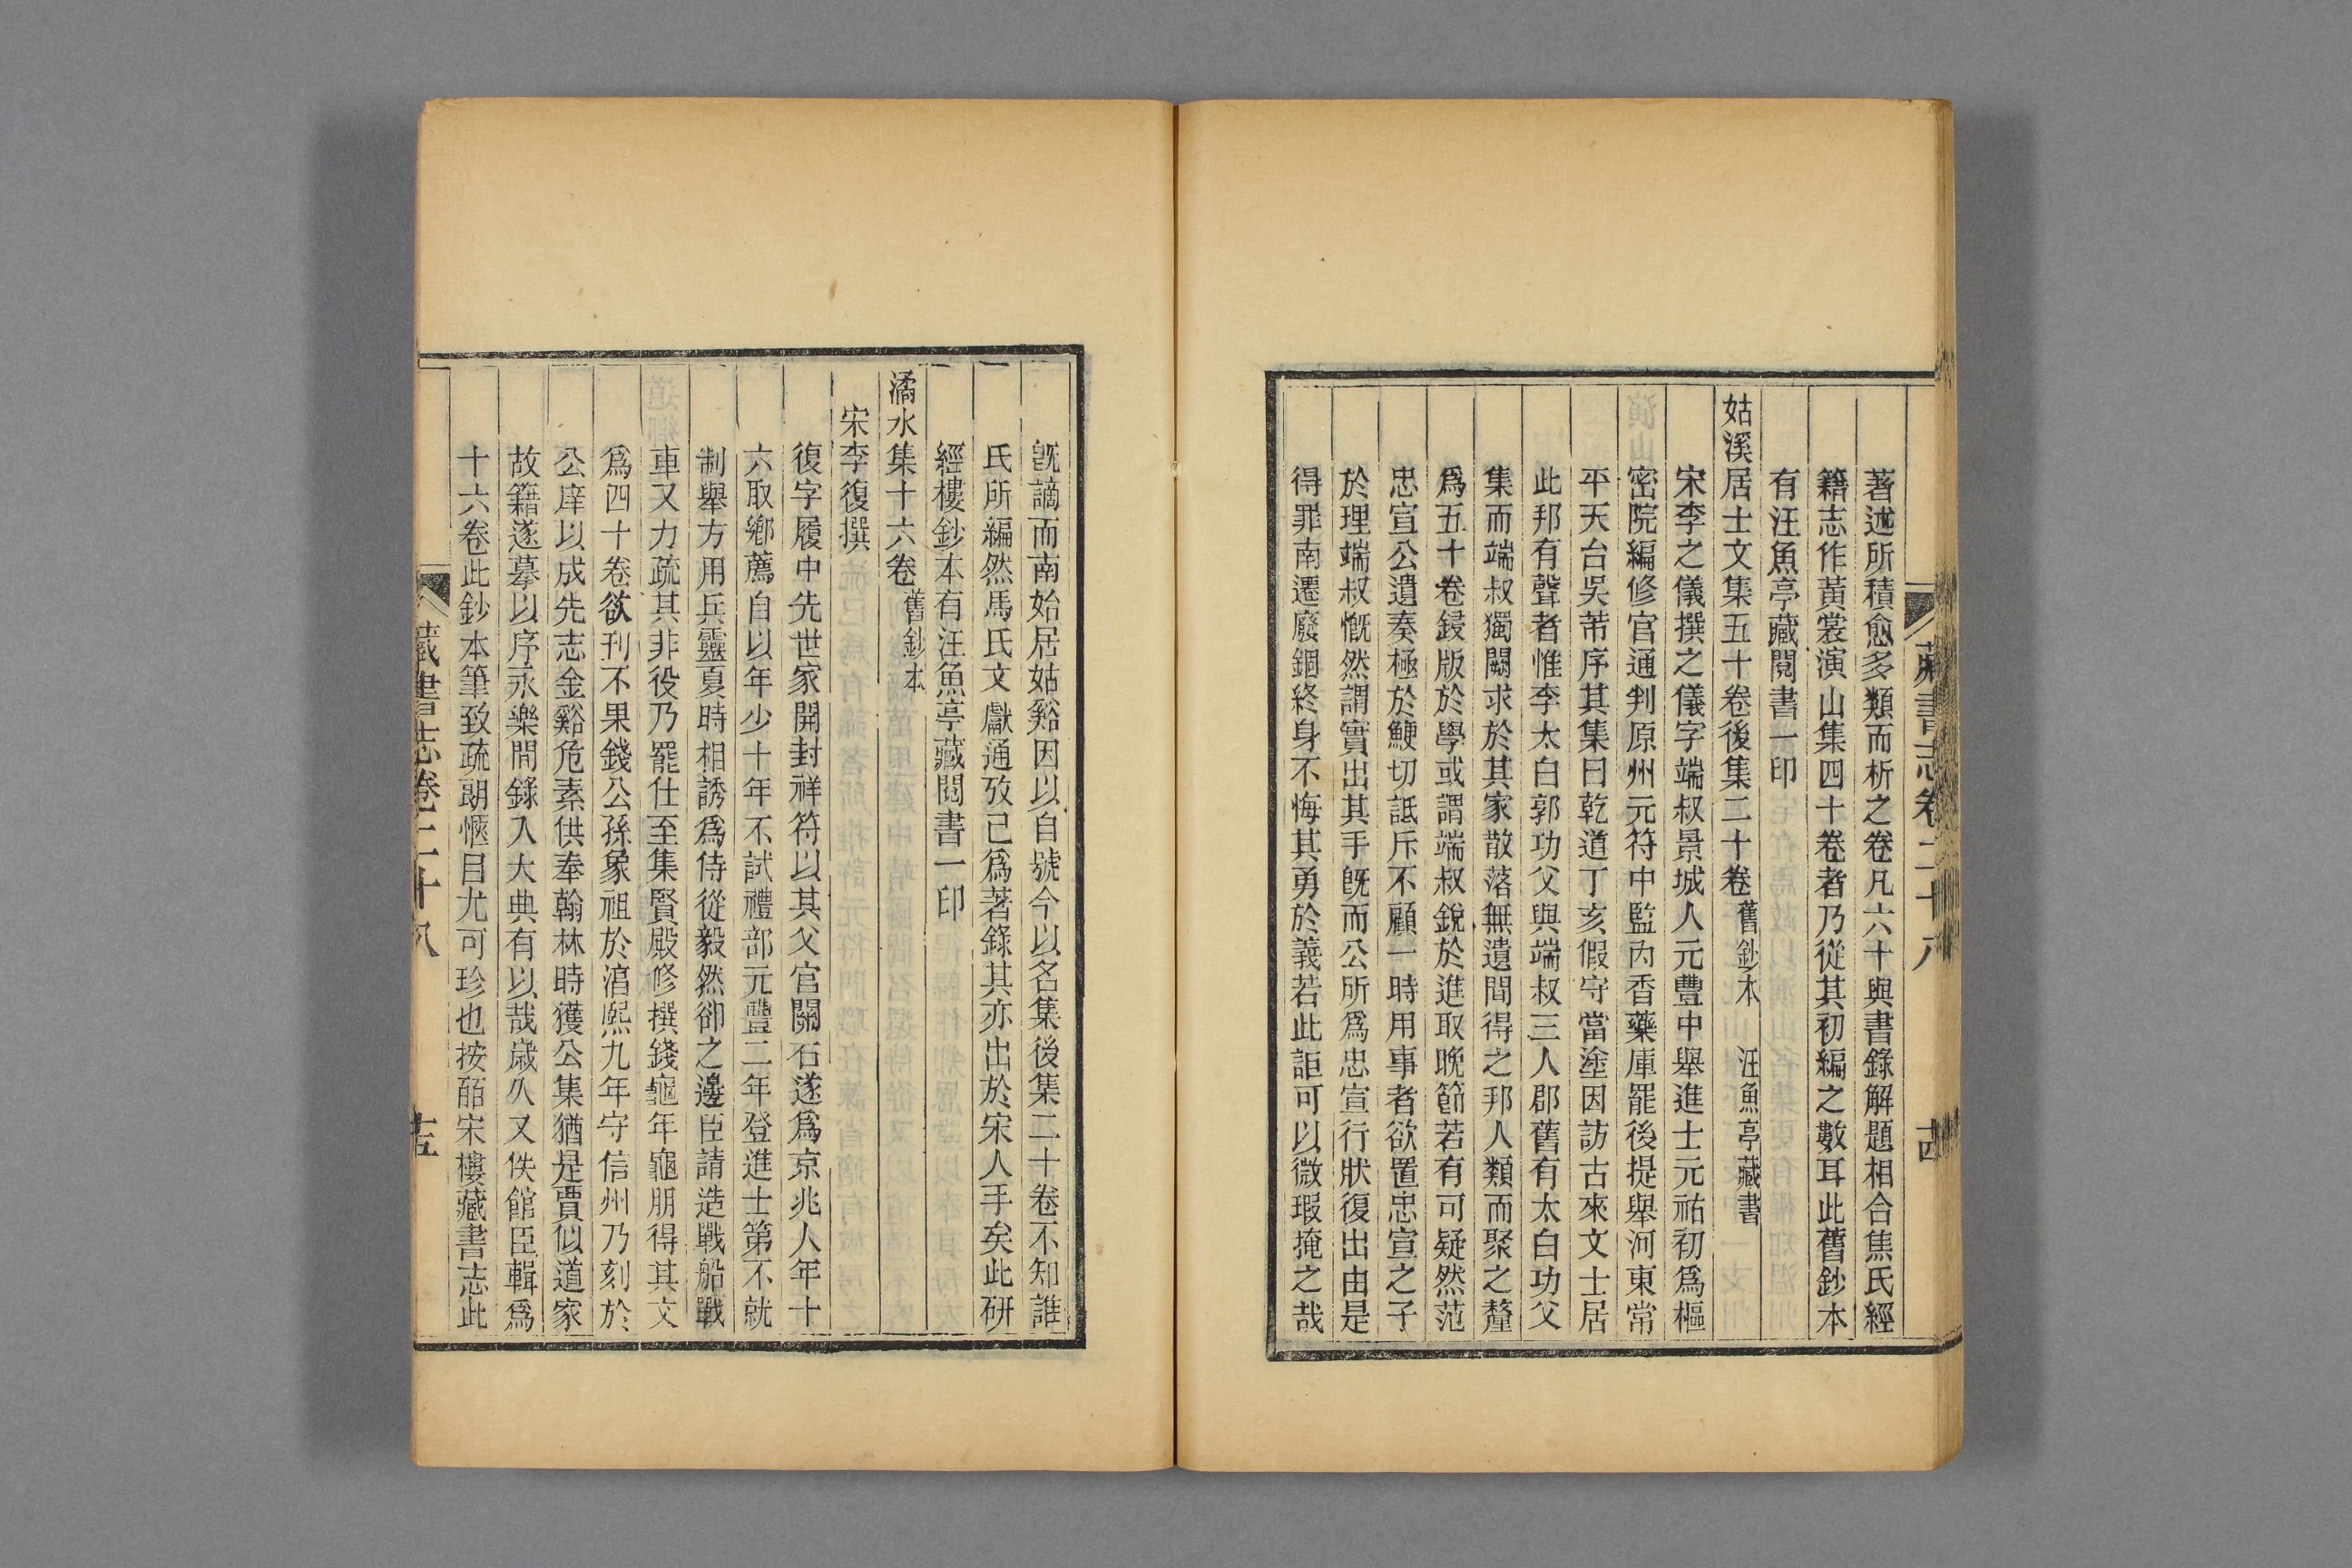 藏書志卷二十八 十四
著述所積愈多類而析之卷凡六十與書錄解題相合焦氏經
籍志作黃裳演山集四十卷者乃從其初編之數耳此舊鈔本
有汪魚亭藏閱書一印
姑溪居士文集五十卷後集二十卷 舊鈔本 汪魚亭藏書
宋李之儀撰之儀字端叔景城人元豐中舉進士元祐初爲樞
密院編修官通判原州元符中監內香藥庫罷後提舉河東常
平天台吳芾序其集曰乾道丁亥假守當塗因訪古來文士居
此邦有聲者惟李太白郭功父與端叔三人郡舊有太白功父
集而端叔獨闕求於其家散落無遺間得之邦人類而聚之釐
爲五十卷鋟版於學或謂端叔銳於進取晚節若有可疑然范
忠宣公遺奏極於鯁切詆斥不顧一時用事者欲置忠宣之子
於理端叔慨然謂實出其手旣而公所爲忠宣行狀復出由是
得罪南遷廢錮終身不悔其勇於義若此詎可以微瑕掩之哉
旣謫而南始居姑谿因以自號今以名集後集二十卷不知誰
氏所編然馬氏文獻通攷已爲著錄其亦出於宋人手矣此研
經樓鈔本有汪魚亭藏閱書一印
潏水集十六卷 舊鈔本
宋李復撰
復字履中先世家開封祥符以其父官關右遂爲京兆人年十
六取鄉薦自以年少十年不試禮部元豐二年登進士第不就
制舉方用兵靈夏時相誘爲侍從毅然卻之邊臣請造戰船戰
車又力疏其非役乃罷仕至集賢殿修撰錢龜年龜朋得其文
爲四十卷欲刊不果錢公孫象祖於湻熙九年守信州乃刻於
公庠以成先志金谿危素供奉翰林時獲公集猶是賈似道家
故籍遂摹以序永樂間錄入大典有以哉歲久又佚館臣輯爲
十六卷此鈔本筆致疏朗愜目尤可珍也按皕宋樓藏書志此
藏書志卷二十八 十五